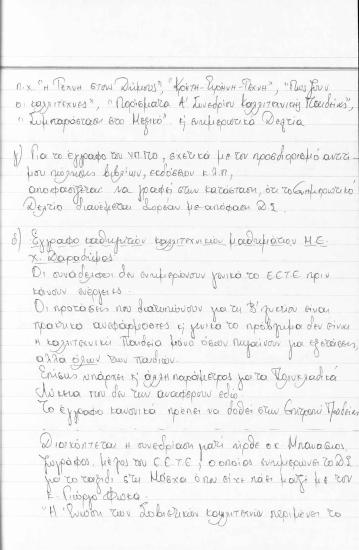 π.χ "η Τέχνη στους Δήμους", "Κρήτη-Ειρήνη-Τέχνη", "Πως ζουν
οι καλλιτέχνες", "Πορίσματα Α' Συνεδρίου Καλλιτεχνικής Παιδείας",
"Συμπαράσταση στο Μεξικό" κ' ενημερωτικά Δελτία
γ) Για το έγγραφο του ΥΠ.ΠΟ, σχετικά με τον προσδιορισμό αντιτί-
μου πώλησης βιβλίων, εκδόσεων κ.λ.π,
αποφασίζεται να γραφεί στην κατάσταση, ότι το Ενημερωτικό
Δελτίο διανέμεται δωρεάν με απόφαση Δ.Σ.
δ) Έγγραφο καθηγητών καλλιτεχνικών μαθημάτων Μ.Ε.
Οι συνάδελφοι δεν ενημερώνουν γενικά το Ε.Ε.Τ.Ε πριν
κάνουν ενέργειες.
Οι προτάσεις που διατυπώνουν για τη Β' λυκείου είναι
πρακτικά ανεφάρμοστες κ' γενικά το πρόβλημα δεν είναι
η καλλιτεχνική Παιδεία μόνο όσων πηγαίνουν για εξετάσεις,
αλλά όλων των παιδιών.
Επίσης υπάρχει κ' άλλη παράμετρος για τα Πολυκλαδικά
Λύκεια που δεν των αναφέρουν εδώ.
Το έγγραφο κανονικά πρέπει να δοθεί στην Επιτροπή Παιδείας
Διακόπτεται η συνεδρίαση γιατί ήρθε ο κ.
ζωγράφος, μέλος του Ε.Ε.Τ.Ε, ο οποίος ενημερώνει το Δ.Σ
για το ταξίδι στη Μόσχα όπου είχε πάει μαζί με τον
κ. Γιώργο
"Η Ένωση των Σοβιετικών καλλιτεχνών περιμένει το